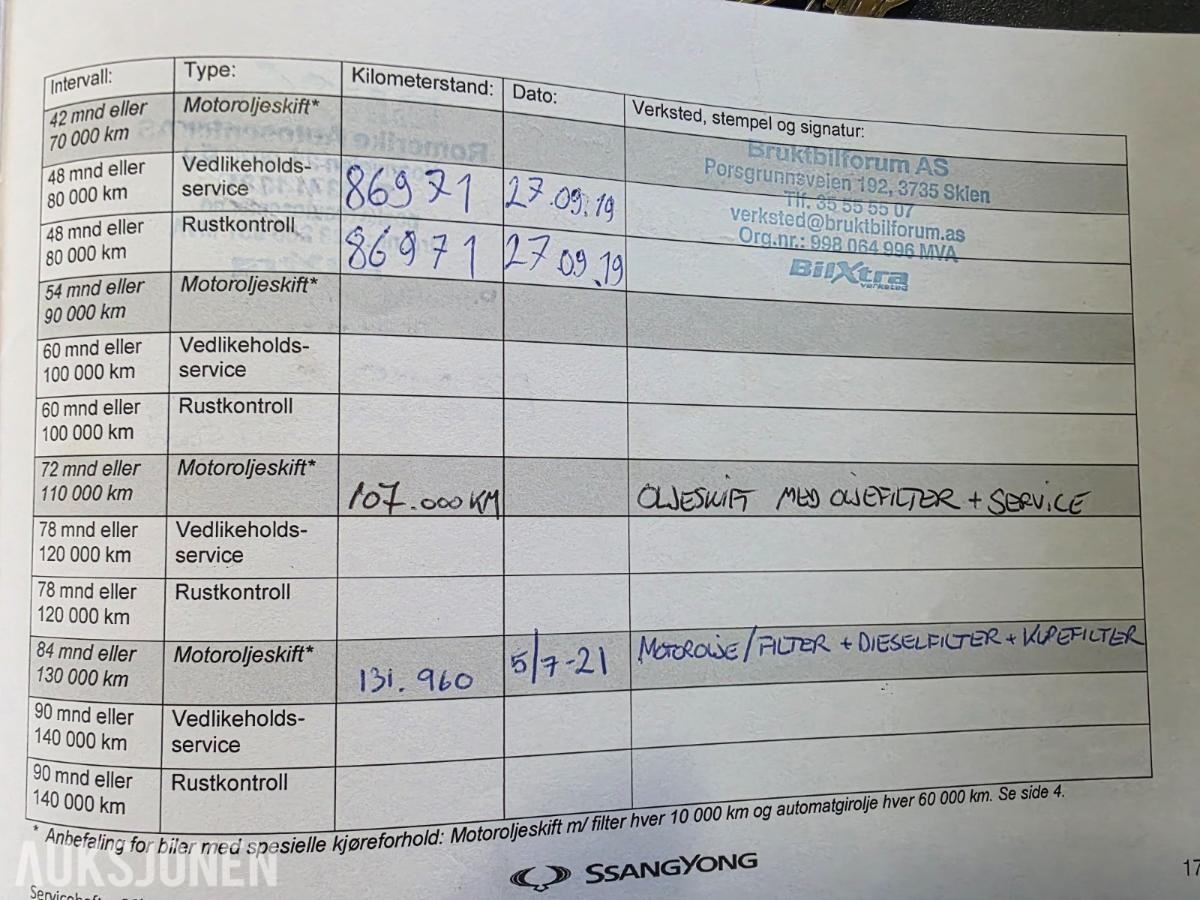 Intervall: Type: Kilometerstand: Dato: Verksted, stempel og signatur:
42 mnd eller Motoroljeskift*
70 000 km
Bruktbilforum AS
Porsgrunnsveien 192, 3735 Skien
Tlf. 35 55 55 07
verksted@bruktbilforum.as
Org.nr.: 998 064 996 MVA
BilXtra
verksted
48 mnd eller Vedlikeholds-
80 000 km service 86971 27.09.19
48 mnd eller Rustkontroll
80 000 km 86971 27.09.19
54 mnd eller Motoroljeskift*
90 000 km
60 mnd eller Vedlikeholds-
100 000 km service
60 mnd eller Rustkontroll
100 000 km
72 mnd eller Motoroljeskift*
110 000 km 107.000 KM OLJESKIFT MED OLJEFILTER + SERVICE
78 mnd eller Vedlikeholds-
120 000 km service
78 mnd eller Rustkontroll
120 000 km
84 mnd eller Motoroljeskift* 5/7-21 MOTOROLJE/FILTER + DIESELFILTER + KUPEFILTER
130 000 km 131.960
90 mnd eller Vedlikeholds-
140 000 km service
90 mnd eller Rustkontroll
140 000 km
* Anbefaling for biler med spesielle kjøreforhold: Motoroljeskift m/ filter hver 10 000 km og automatgirolje hver 60 000 km. Se side 4.
AUKSJONEN
SSANGYONG
17